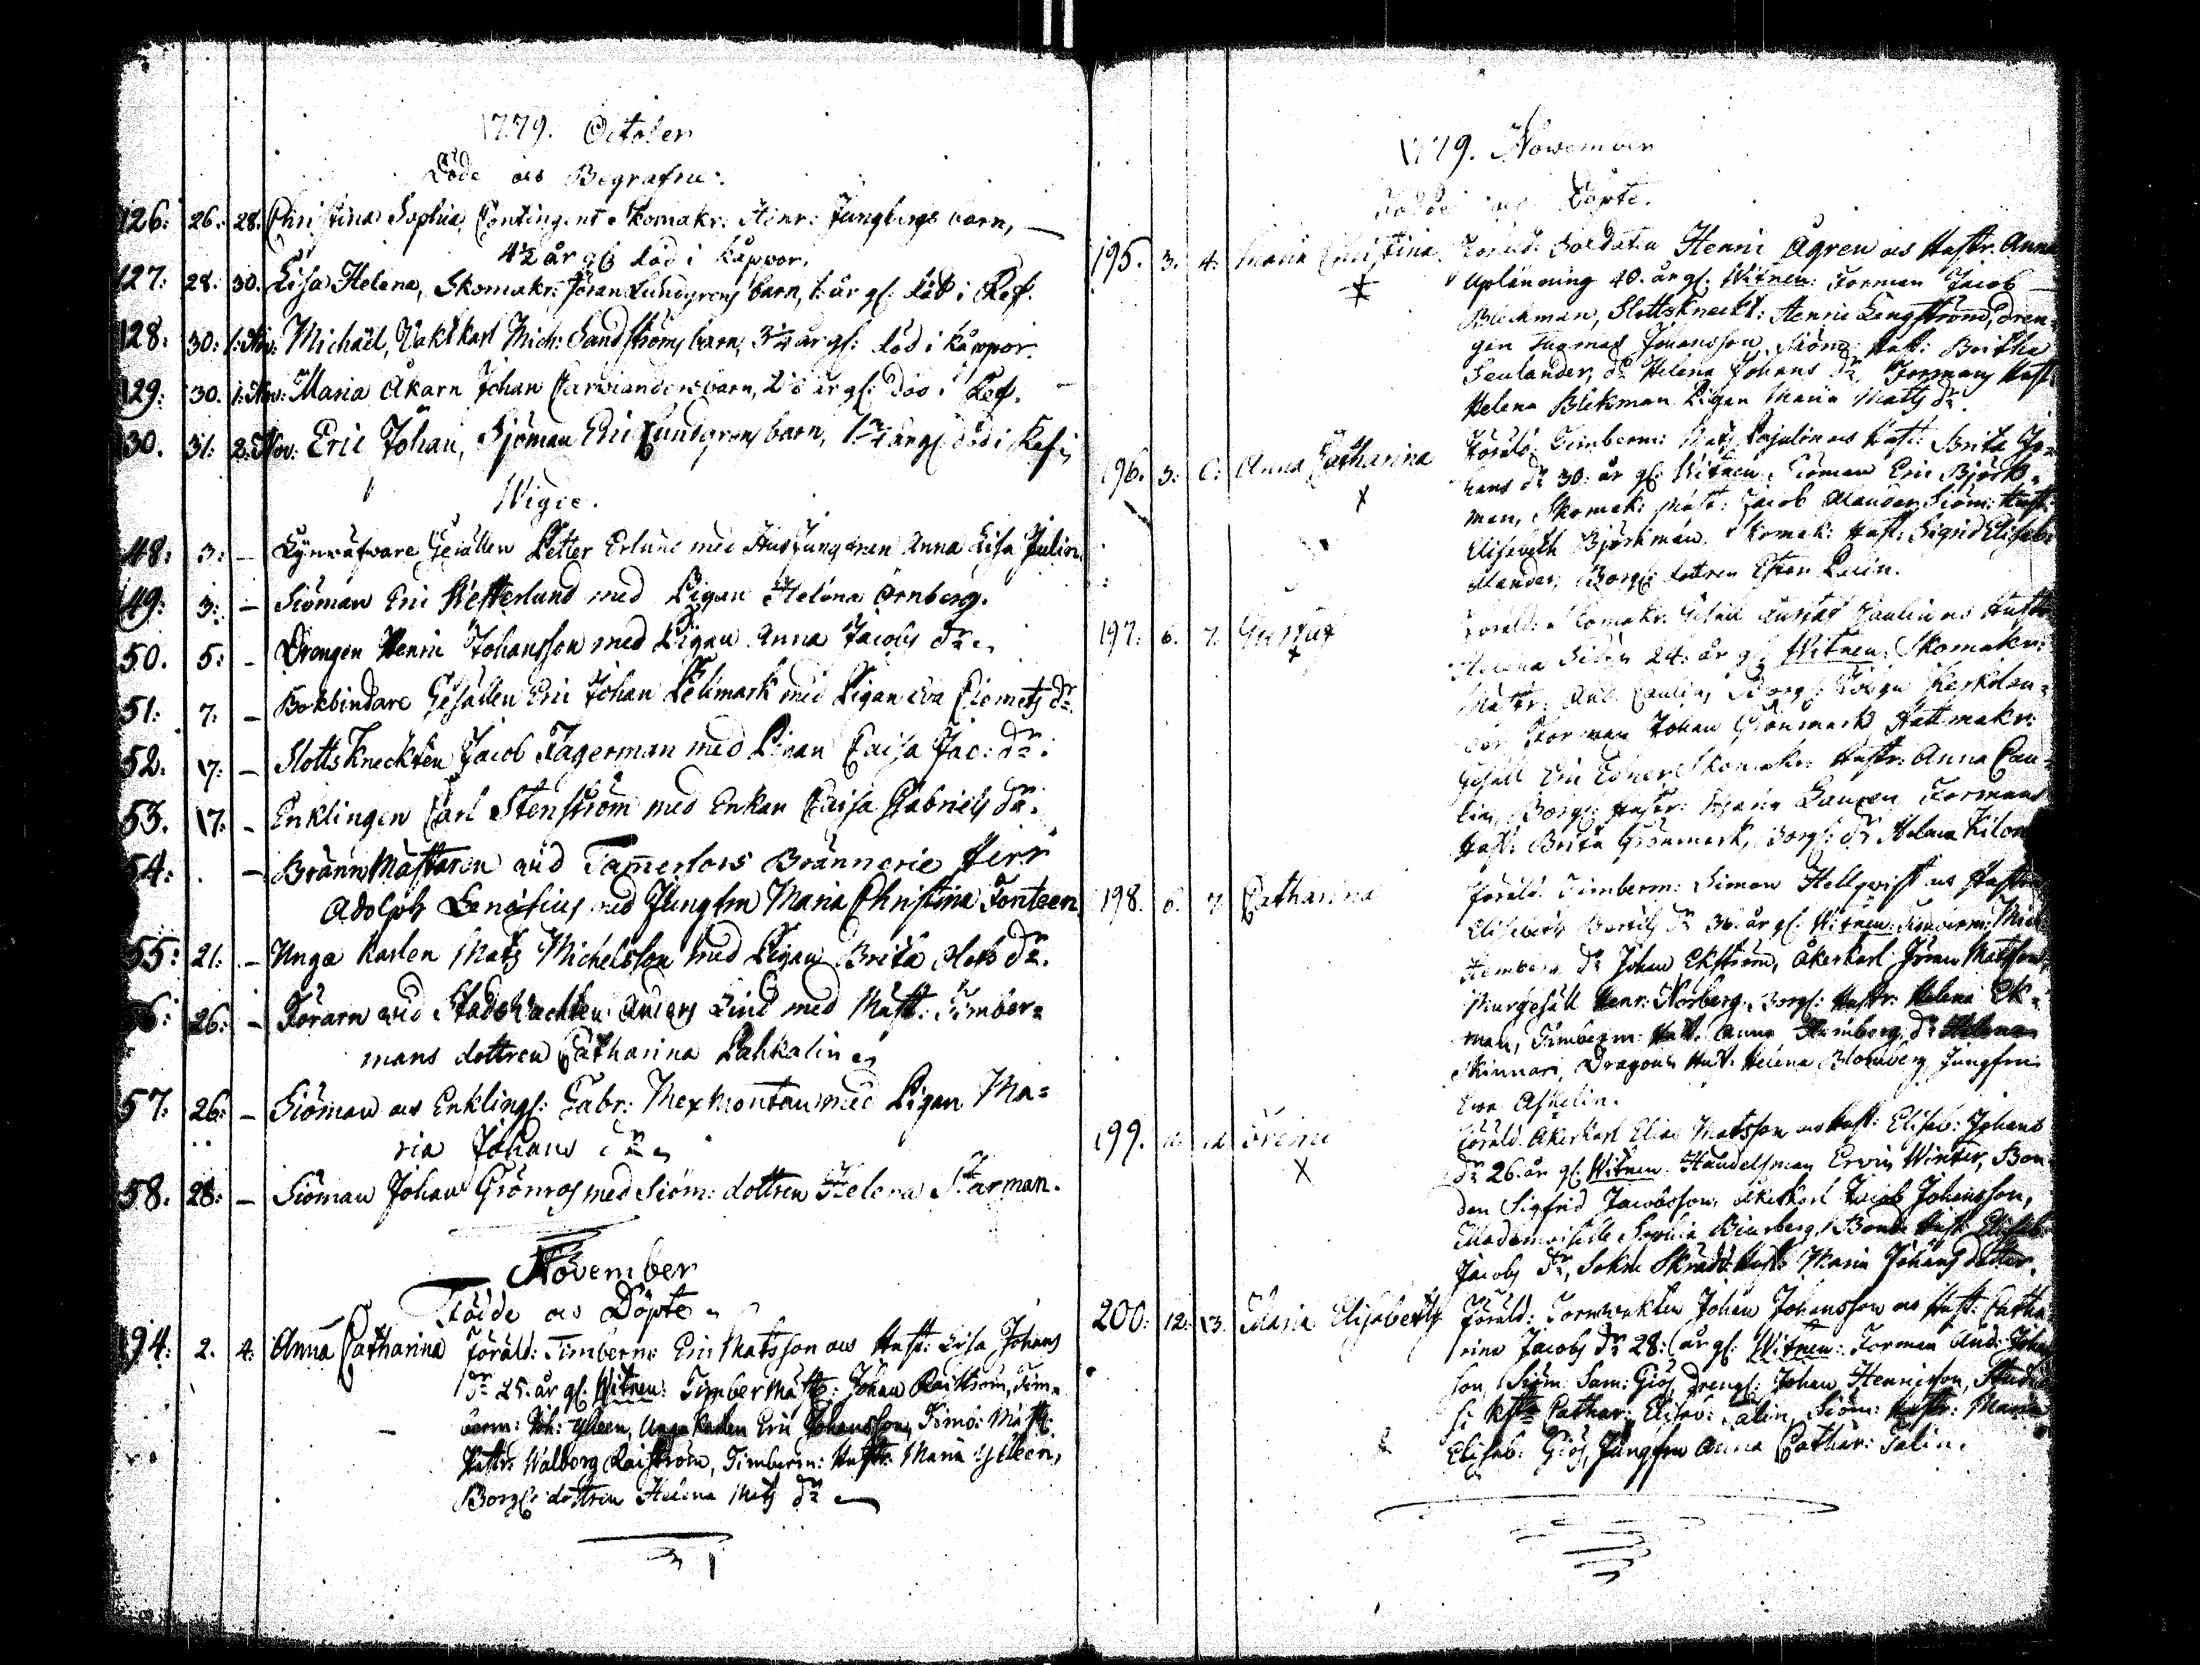 1779. October
Döde och Begrafne:
126: 26: 28. Christina Sophia, Contingent Skomakr: Henr: Jungbergs barn,
4½ år gl: död i Kåppor.
127: 28: 30. Lisa Helena, Skomakr: Jöran Lundgrens barn, 1 år gl: död i Kef.
128: 30: 1: Nov: Michaël, Vaktkarl Mich: Sandströms barn, 3¼ år gl: död i Kåppor.
129: 30. 1: Nov: Maria Åkarn Johan barn, år gl: död i Kef.
130. 31: 2: Nov: Eric Johan, Sjöman Eric Lundgrens barn, 1¾ år gl: död i Kef:
Wigde.
48: 3: – Gesällen Petter Erlund med Jungfrun Anna Lisa Julin
49: 3: – Siöman Eric Wetterlund med Pigan Helena Örnberg.
50. 5: – Drengen Henric Johansson med Pigan Anna Jacobs dr
51: 7: – Bokbindare Gesällen Eric Johan Selimark med Pigan Eva Clemets dr.
52. 17: – Slotts Knechten Jacob Fagerman med Pigan Caisa Jac: dr.
53. 17: – Enklingen Carl Stenström med Enkan Caisa Gabriels dr.
54: . – Bränn Mästaren vid Tammerfors Brännerie Herr
Adolph Lenæsius med Jungfru Maria Christina Fonteen
55: 21: – Unga Karlen Matts Michelsson med Pigan Brita Mats dr.
56: 26: – Förarn vid Stads Vachten Anders Lind med Mäst: Timber=
mans dottren Catharina Lahkalin
57: 26: – Siöman och Enklingl: Gabr: Mexmontan med Pigan Ma=
ria Johans dr
58. 28: – Siöman Johan Grönros med Siöm: dottren Helena Starman.
November
Födde och Döpte
194: 2. 4: Anna Catharina Föräld: Timberm: Eric Matsson och Hust: Lisa Johans
dr 25. år gl: Witnen: Timber Mäst: Johan Raiström, Tim=
berm: Joh: Ylleen, Unga Karlen Eric Johansson, Timb: Mäst:
Hustr: Walborg Raiström, Timberm: Hustr: Maria Ylleen,
Borgl: dottren Helena Mats dr
1779. November
Födde och Döpte.
195. 3. 4: Maria Christina Föräld: Soldaten Henric Ågren och Hustr. Anna
Uplänning 40. år gl: Witnen: Forman Jacob
Bleckman, Slottsknecht: Henric Lengström, Dren=
gen Johansson, Siöm: Hust: Britha
Seulander, dr Helena Johans dr, Formans Hust:
Helena Blekman Pigan Maria Mats dr.
196. 5: 6: Anna Catharina Föräld: Timberm: Mats och Hust: Brita Jo=
hans dr 30: år gl: Witnen: Siöman Eric Björk=
man, Skomak: Mäst: Jacob Alander, Siöm: Hust:
Elisabeth Björkman. Skomak: Hust: Sigrid Elisab:
Alander, Borgl: dottren Ester
197: 6. 7. Gustaf Föräld: Skomakr: Gesäll Gustaf Paulin och Hustr:
Helena 24: år gl: Witnen: Skomakr:
Mästr: Borgl:
Forman Johan Grönmark Hattmakr:
Gesäll Eric Skomakr: Hustr: Anna Cau=
lin, Borgl: Hustr: Maria Formans
Hust: Brita Grönmark, Borgl: dr Helena
198. 6. 7. Catharina Föräld: Timberm: Simon Hellqvist och Hustr:
Elisabeth Bertils dr 36. år gl: Witnen: Timberm: Mich:
Hemberg, dr Johan Ekström, Åkerkarl Jöran Matsson,
Murgesäll Henr: Norberg, Borgl: Hustr: Helena Ek=
man, Timberm: Hust. Anna Hemberg, dr Helena
Skinnari, Dragouns Hust: Helena Blomberg Jungfru
Ewa Askelin.
199. Föräld: Åkerkarl Elias Matsson och Hust: Elisab: Johans
dr 26. år gl: Witnen: Handelsman Ervin Winter, Bon=
den Sigfrid Jacobsson, Åkerkarl Jacob Johansson,
Mademoiselle Sophia Biurberg, Bond: Hust: Elisab:
Jacobs dr, Sokne Skrädd: Hust: Maria Johans dotter.
200: 12: 13. Maria Elisabeth Föräld: Tornvakten Johan Johansson och Hust: Catha=
rina Jacobs dr 28: år gl: Witnen: Forman And: Johans=
son, Siöm: Sam: Giös, Drengl: Johan Henricsson,
Cathar: Elisab: Talin, Siöm: Hustr: Maria
Elisab: Giös, Jungfru Anna Cathar: Talin.